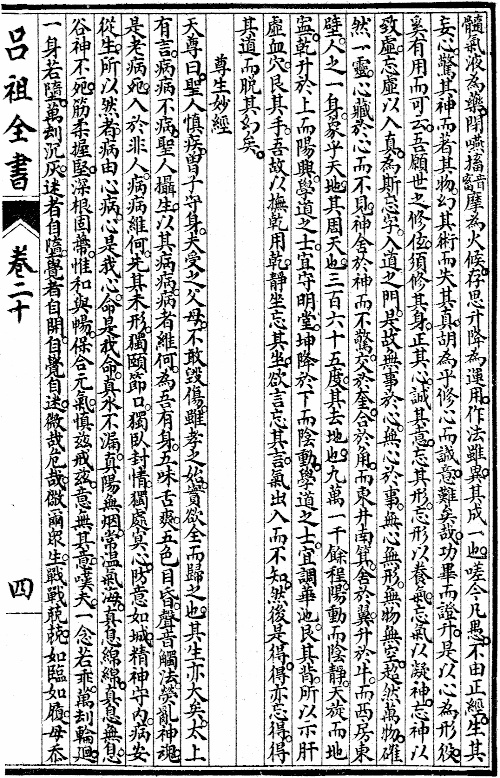 髓氣液為藥閉嚥搐音畜摩為火候存思升降為運用作法雖異其成一也嗟今凡愚不由正經生其
妄心驚其神而者其物幻其術而失其真胡為乎修心而誠意難矣哉功畢而證升是以心為形役
奚有用而可云吾願世之修位須修其身正其心誠其意忘其形忘形以養氣忘氣以凝神忘神以
致虛忘虛以入真為斯忘字入道之門是故無事於心無心於事無心無形無物無空超然萬物確
然一靈心藏於心而不見神舍於神而不驚交於奎合於角而東井南箕舍於翼升於牛而西房東
壁人之一身象乎天地其周天也三百六十五度其去地也九萬一千餘程陽動而陰靜天旋而地
盂乾升於上而陽興學道之士宜守明堂坤降於下而陰動學道之士宜調華池艮其背所以示肝
虛血穴艮其手吾故以撫乾用乾靜坐忘其坐欲言忘其言氣出入而不知然後是得得亦忘得得
其道而脫其幻矣
尊生妙經
天尊曰聖人慎疾曾子守身夫受之父母不敢毀傷雖孝之始實欲全而歸之也其生亦大矣太上
有言病病不病聖人攝生以其病病病者維何為吾有身五味舌爽五色目昏聲音觸法勞亂神魂
是老病死入於非人病病維何先其未形獨頤節口獨臥封情獨處冥心防意如城精神守內病安
從生所以然者病由心病心是我心命是我命真水不漏真陽無烟常溫氣海真息綿綿真息無息
谷神不死筋柔握堅深根固蒂惟和與暢保合元氣慎茲戒茲意無其意嘆夫一念若乖萬刦輪廻
一身若隨萬刦沉灰迷者自隨覺者自開自覺自迷微哉危哉儆爾眾生戰戰兢兢如臨如履毋忝
呂祖全書
卷二十
四